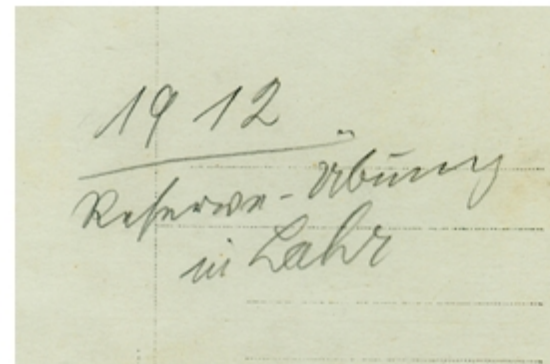 1912
Reserve-Übung
in Lahr